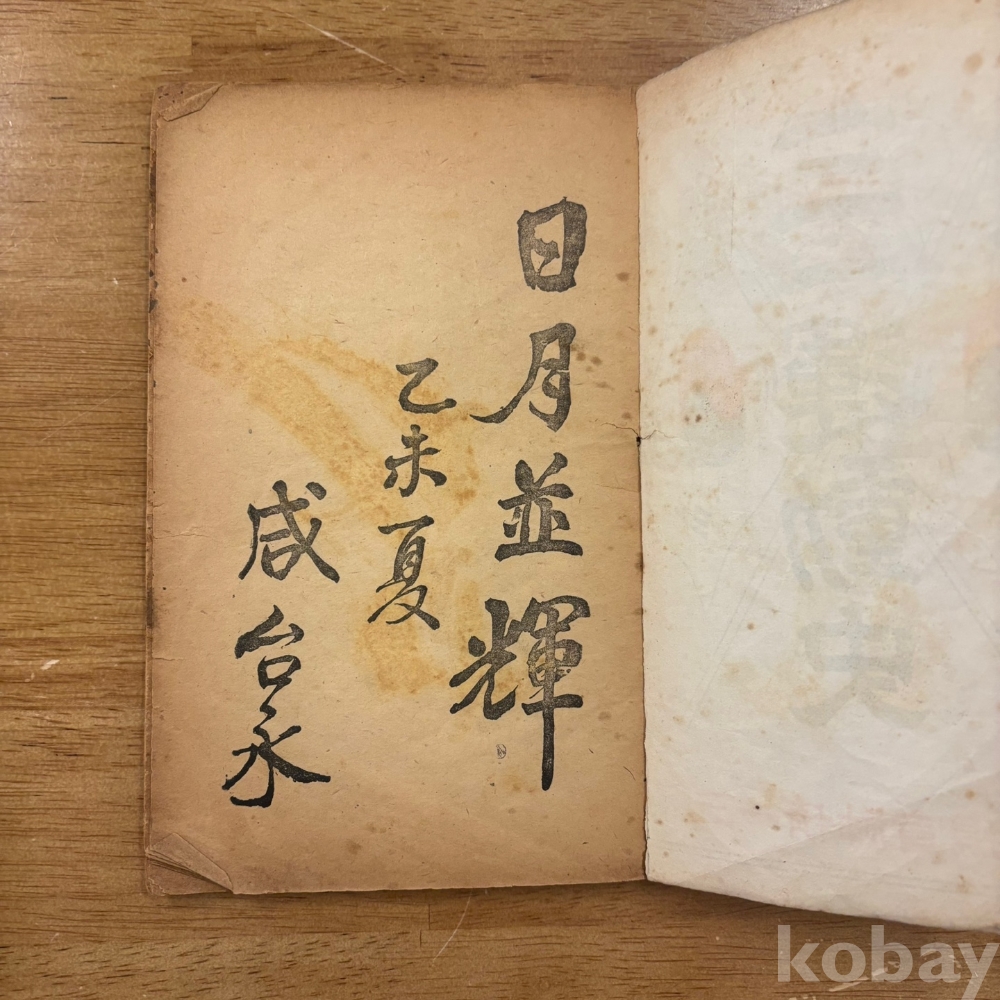 日月並輝
乙未夏
咸台永
kobay